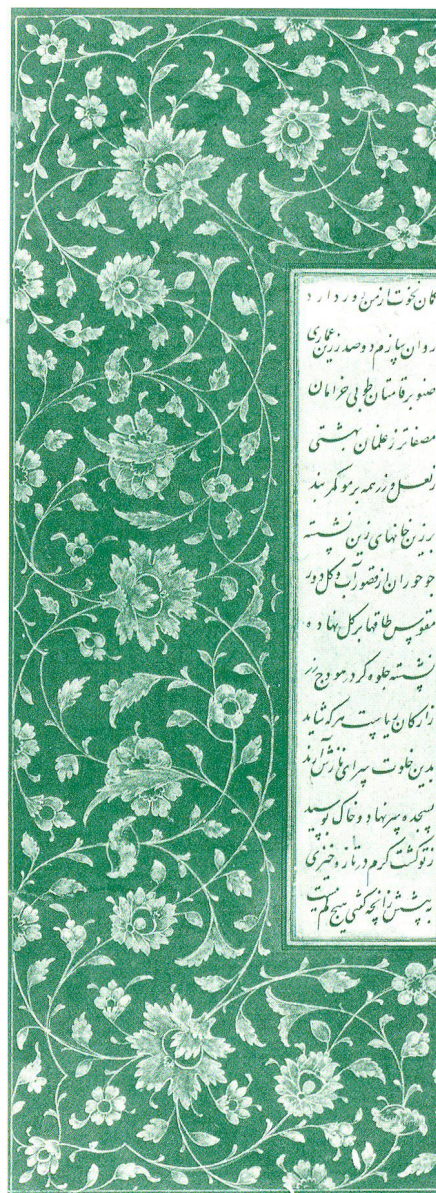 کمان نخوت از من دور دارد
روان سازم دو صد زرین عماری
صنوبر قامتان طوبی خرامان
مصفاتر ز غلمان بهشتی
ز لعل و زر همه بر مو کمر بند
بزرین خانهای زین نشسته
چو حوران از قصور آب و گل دور
مقوس طاقها بر گل نهاده
نشسته جلوه گر در هودج زر
ز ارکان ریاست هر که شاید
بدین خلوت سرای نازش آرند
بسجده سر نهاد و خاک بوسید
ز تو کشت کرم در تازه خیزی
به پیشش ز آنچه گفتی هیچ کم نیست